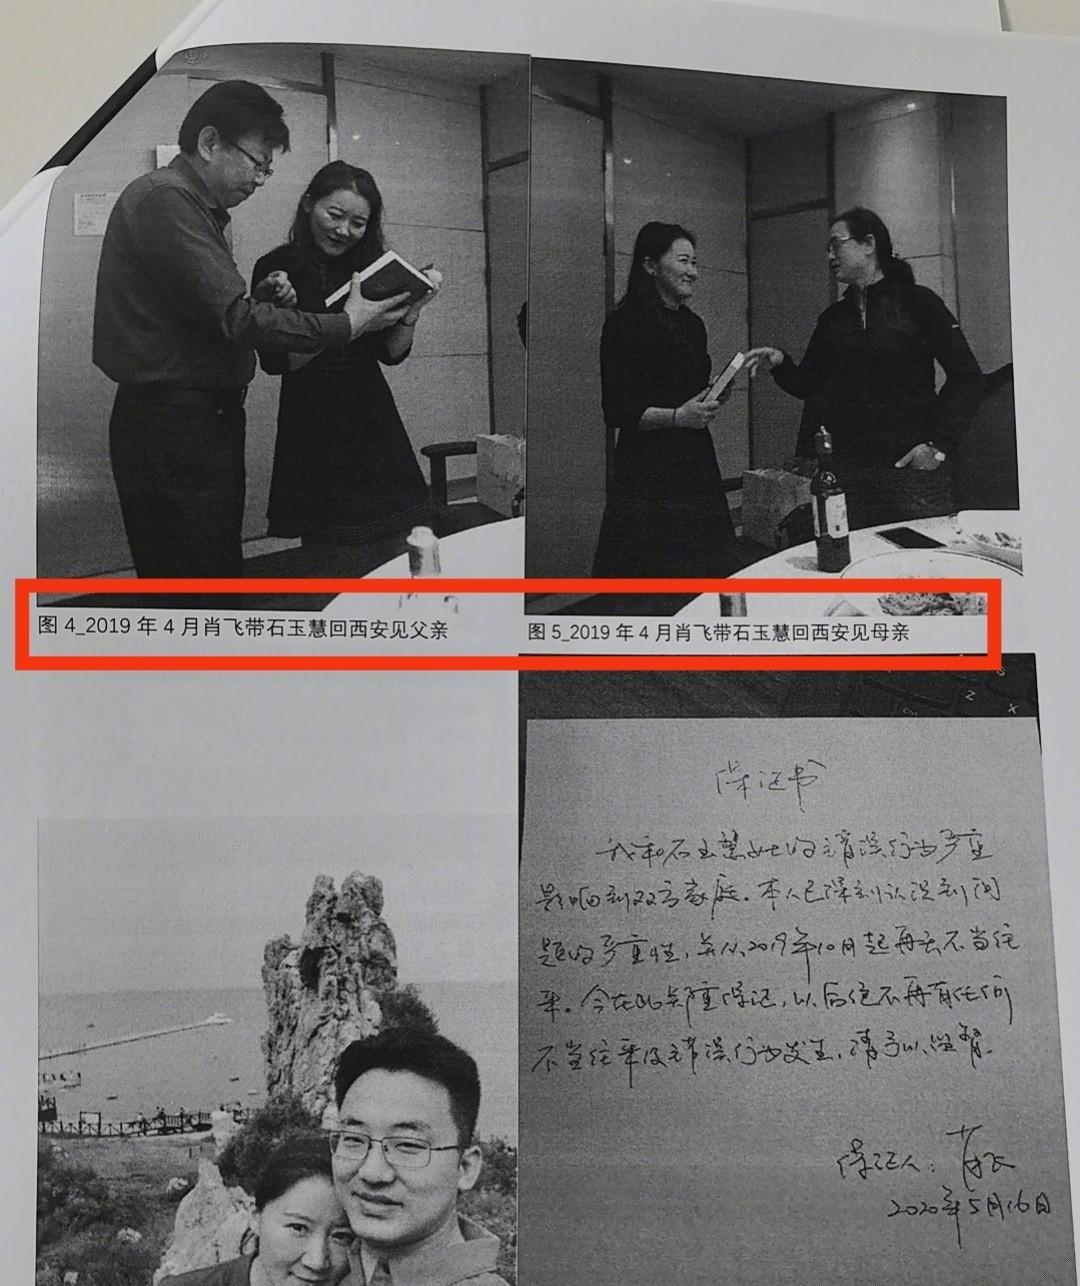 图 4_2019 年 4 月肖飞带石玉慧回西安见父亲
图 5_2019 年 4 月肖飞带石玉慧回西安见母亲
保证书
我和石玉慧女士的错误行为严重
影响到双方家庭。本人已深刻认识到问
题的严重性，并从2019年10月起再无不当往
来。今在此郑重保证，以后绝不再有任何
不当往来及错误行为发生，请予以监督。
保证人：肖飞
2020年5月16日
Z
X